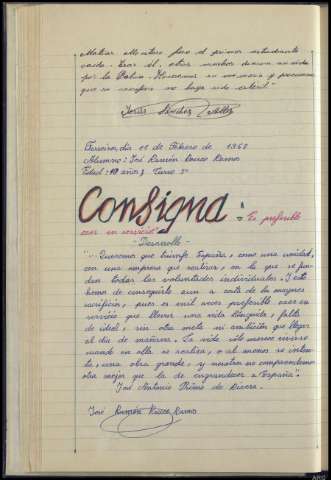 Matías Montero fue el primer estudiante
caido. Tras él, otros muchos dieron su vida
por la Patria. Honremos su memoria y procuremos
que su sacrificio no haya sido esteril".
Jesús Sánchez
Ferreira, día 11 de Febrero de 1960
Alumno: José Ramón Rouco Ramo
Edad: 10 años; Curso 3º
Consigna: "Es preferible
caer en servicio"
-Desarrollo-
"Queremos que triunfe España, como una unidad,
con una empresa que realizar, en la que se fun-
dan todas las voluntades individuales. Y esto
hemos de conseguirlo aun a costa de los mayores
sacrificios, pues es mil veces preferible caer en
servicio que llevar una vida lánguida, falta
de ideal, sin otra meta ni ambición que llegar
al día de mañana. La vida sólo merece vivirse
cuando en ella se realiza, o al menos se inten-
ta, una obra grande, y nosotros no comprendemos
otra mejor que la de engrandecer a España".
José Antonio Primo de Rivera.
José Ramón Rouco Ramo